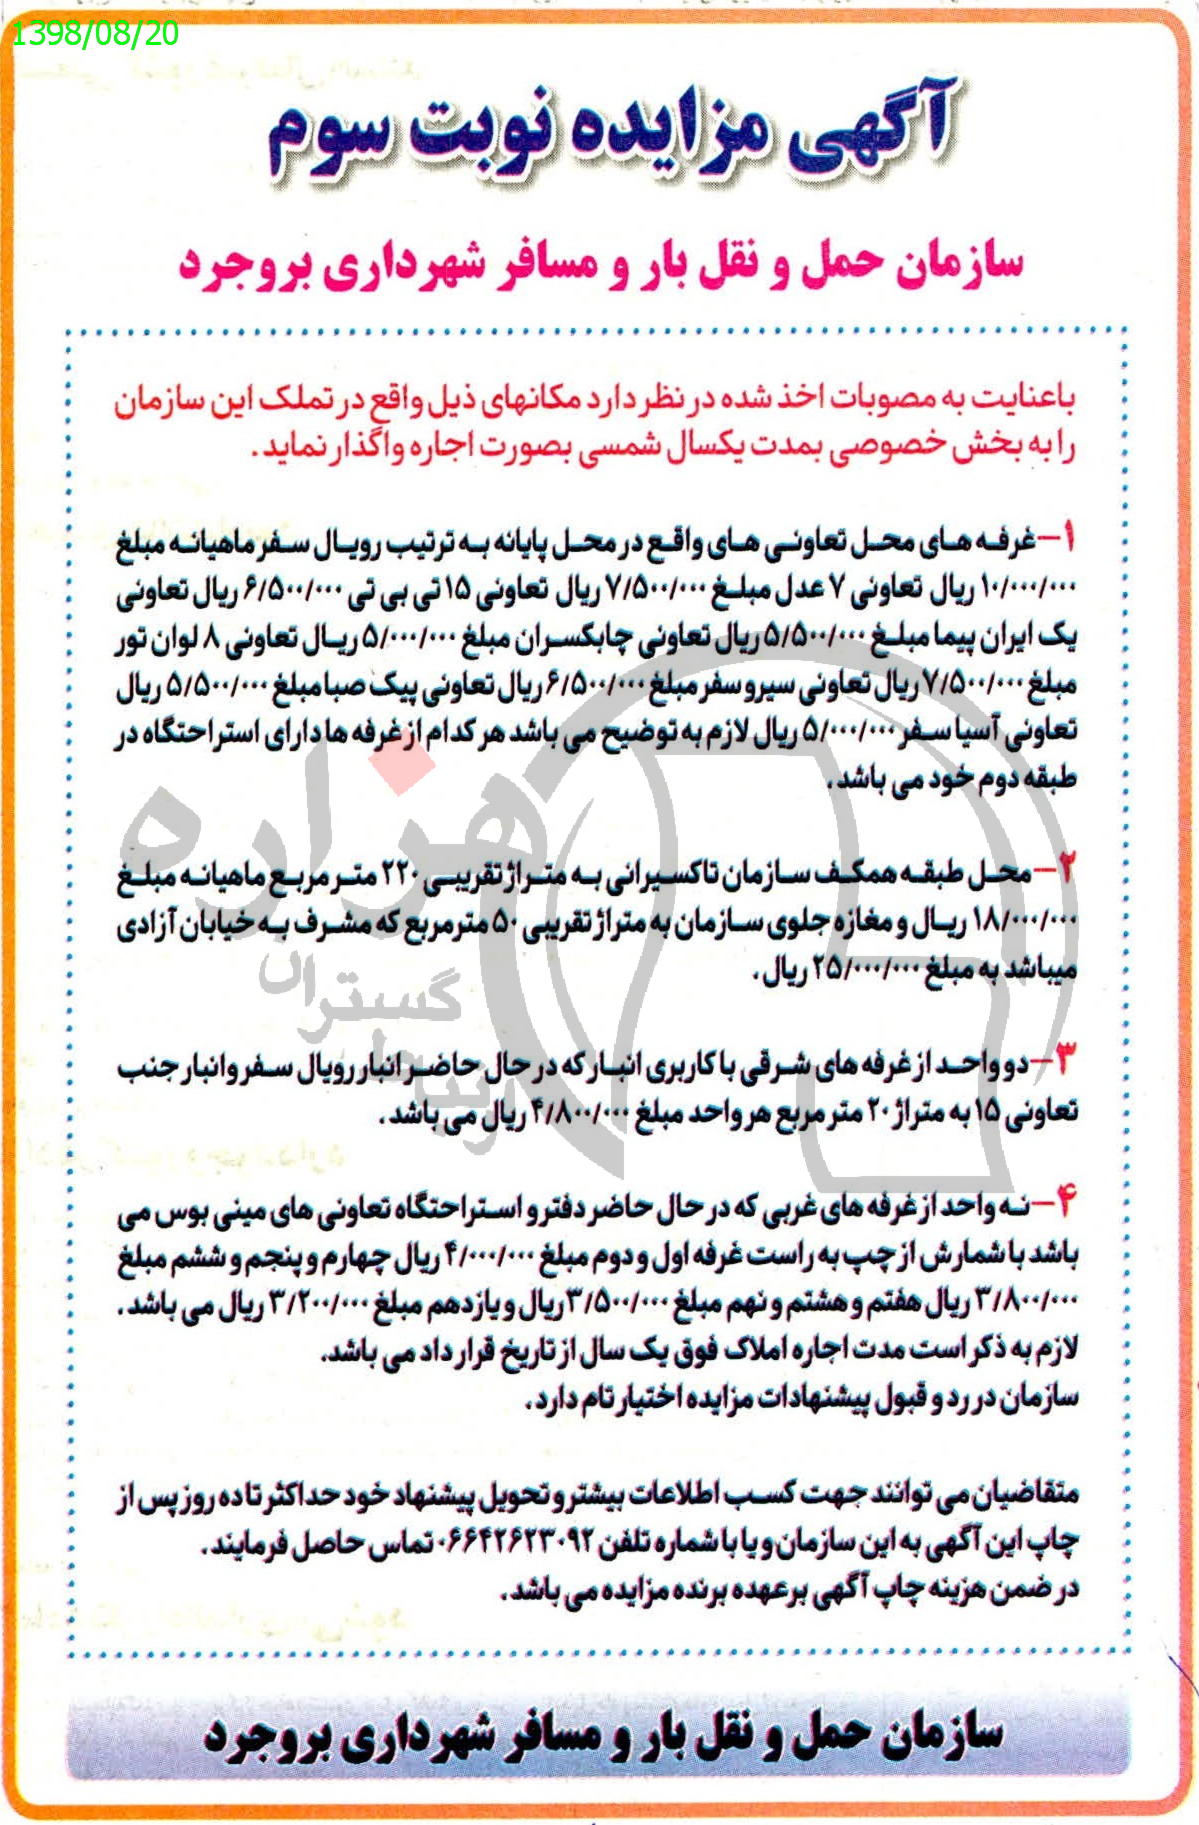 1398/08/20
آگهی مزایده نوبت سوم
سازمان حمل و نقل بار و مسافر شهرداری بروجرد
باعنایت به مصوبات اخذ شده در نظر دارد مکانهای ذیل واقع در تملک این سازمان
را به بخش خصوصی بمدت یکسال شمسی بصورت اجاره واگذار نماید.
۱-غرفه های محل تعاونی های واقع در محل پایانه به ترتیب رویال سفر ماهیانه مبلغ
۱۰/۰۰۰/۰۰۰ ریال تعاونی ۷ عدل مبلغ ۷/۵۰۰/۰۰۰ ریال تعاونی ۱۵ تی بی تی ۶/۵۰۰/۰۰۰ ریال تعاونی
یک ایران پیما مبلغ ۵/۵۰۰/۰۰۰ ریال تعاونی چابکسران مبلغ ۵/۰۰۰/۰۰۰ ریال تعاونی ۸ لوان تور
مبلغ ۷/۵۰۰/۰۰۰ ریال تعاونی سیروسفر مبلغ ۶/۵۰۰/۰۰۰ ریال تعاونی پیک صبا مبلغ ۵/۵۰۰/۰۰۰ ریال
تعاونی آسیا سفر ۵/۰۰۰/۰۰۰ ریال لازم به توضیح می باشد هر کدام از غرفه ها دارای استراحتگاه در
طبقه دوم خود می باشد.
۲-محل طبقه همکف سازمان تاکسیرانی به متراژ تقریبی ۲۲۰ متر مربع ماهیانه مبلغ
۱۸/۰۰۰/۰۰۰ ریال و مغازه جلوی سازمان به متراژ تقریبی ۵۰ مترمربع که مشرف به خیابان آزادی
میباشد به مبلغ ۲۵/۰۰۰/۰۰۰ ریال.
۳-دو واحد از غرفه های شرقی با کاربری انبار که در حال حاضر انبار رویال سفر و انبار جنب
تعاونی ۱۵ به متراژ ۲۰ متر مربع هر واحد مبلغ ۴/۸۰۰/۰۰۰ ریال می باشد.
۴-نه واحد از غرفه های غربی که در حال حاضر دفتر و استراحتگاه تعاونی های مینی بوس می
باشد با شمارش از چپ به راست غرفه اول و دوم مبلغ ۴/۰۰۰/۰۰۰ ریال چهارم و پنجم و ششم مبلغ
۳/۸۰۰/۰۰۰ ریال هفتم و هشتم و نهم مبلغ ۳/۵۰۰/۰۰۰ ریال و یازدهم مبلغ ۳/۲۰۰/۰۰۰ ریال می باشد.
لازم به ذکر است مدت اجاره املاک فوق یک سال از تاریخ قرارداد می باشد.
سازمان در رد و قبول پیشنهادات مزایده اختیار تام دارد.
متقاضیان می توانند جهت کسب اطلاعات بیشتر و تحویل پیشنهاد خود حداکثر تا ده روز پس از
چاپ این آگهی به این سازمان و یا با شماره تلفن ۰۶۶۴۲۶۲۳۰۹۲ تماس حاصل فرمایند.
در ضمن هزینه چاپ آگهی برعهده برنده مزایده می باشد.
سازمان حمل و نقل بار و مسافر شهرداری بروجرد
هزاره
گستران